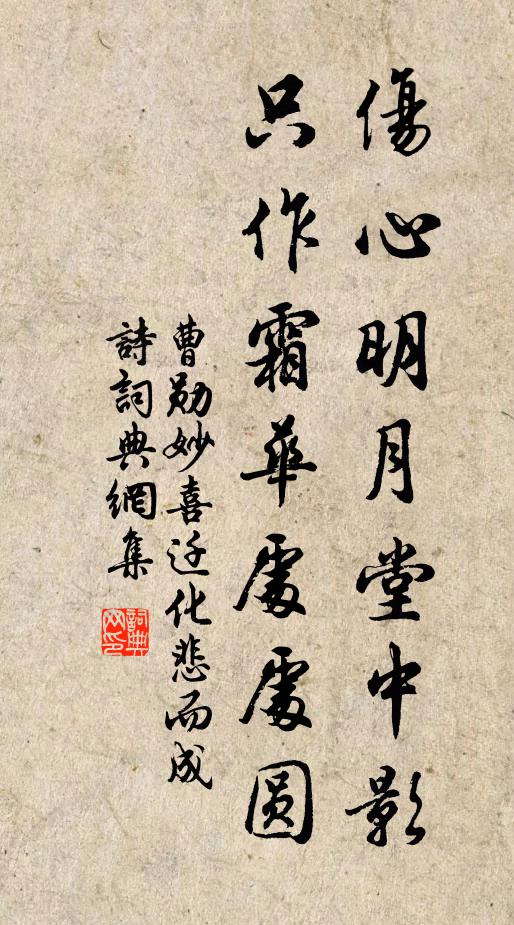 傷心明月堂中影
只作霜華處處圓
曹勛妙喜迁化悲而成
詩詞典網集
詞典网印